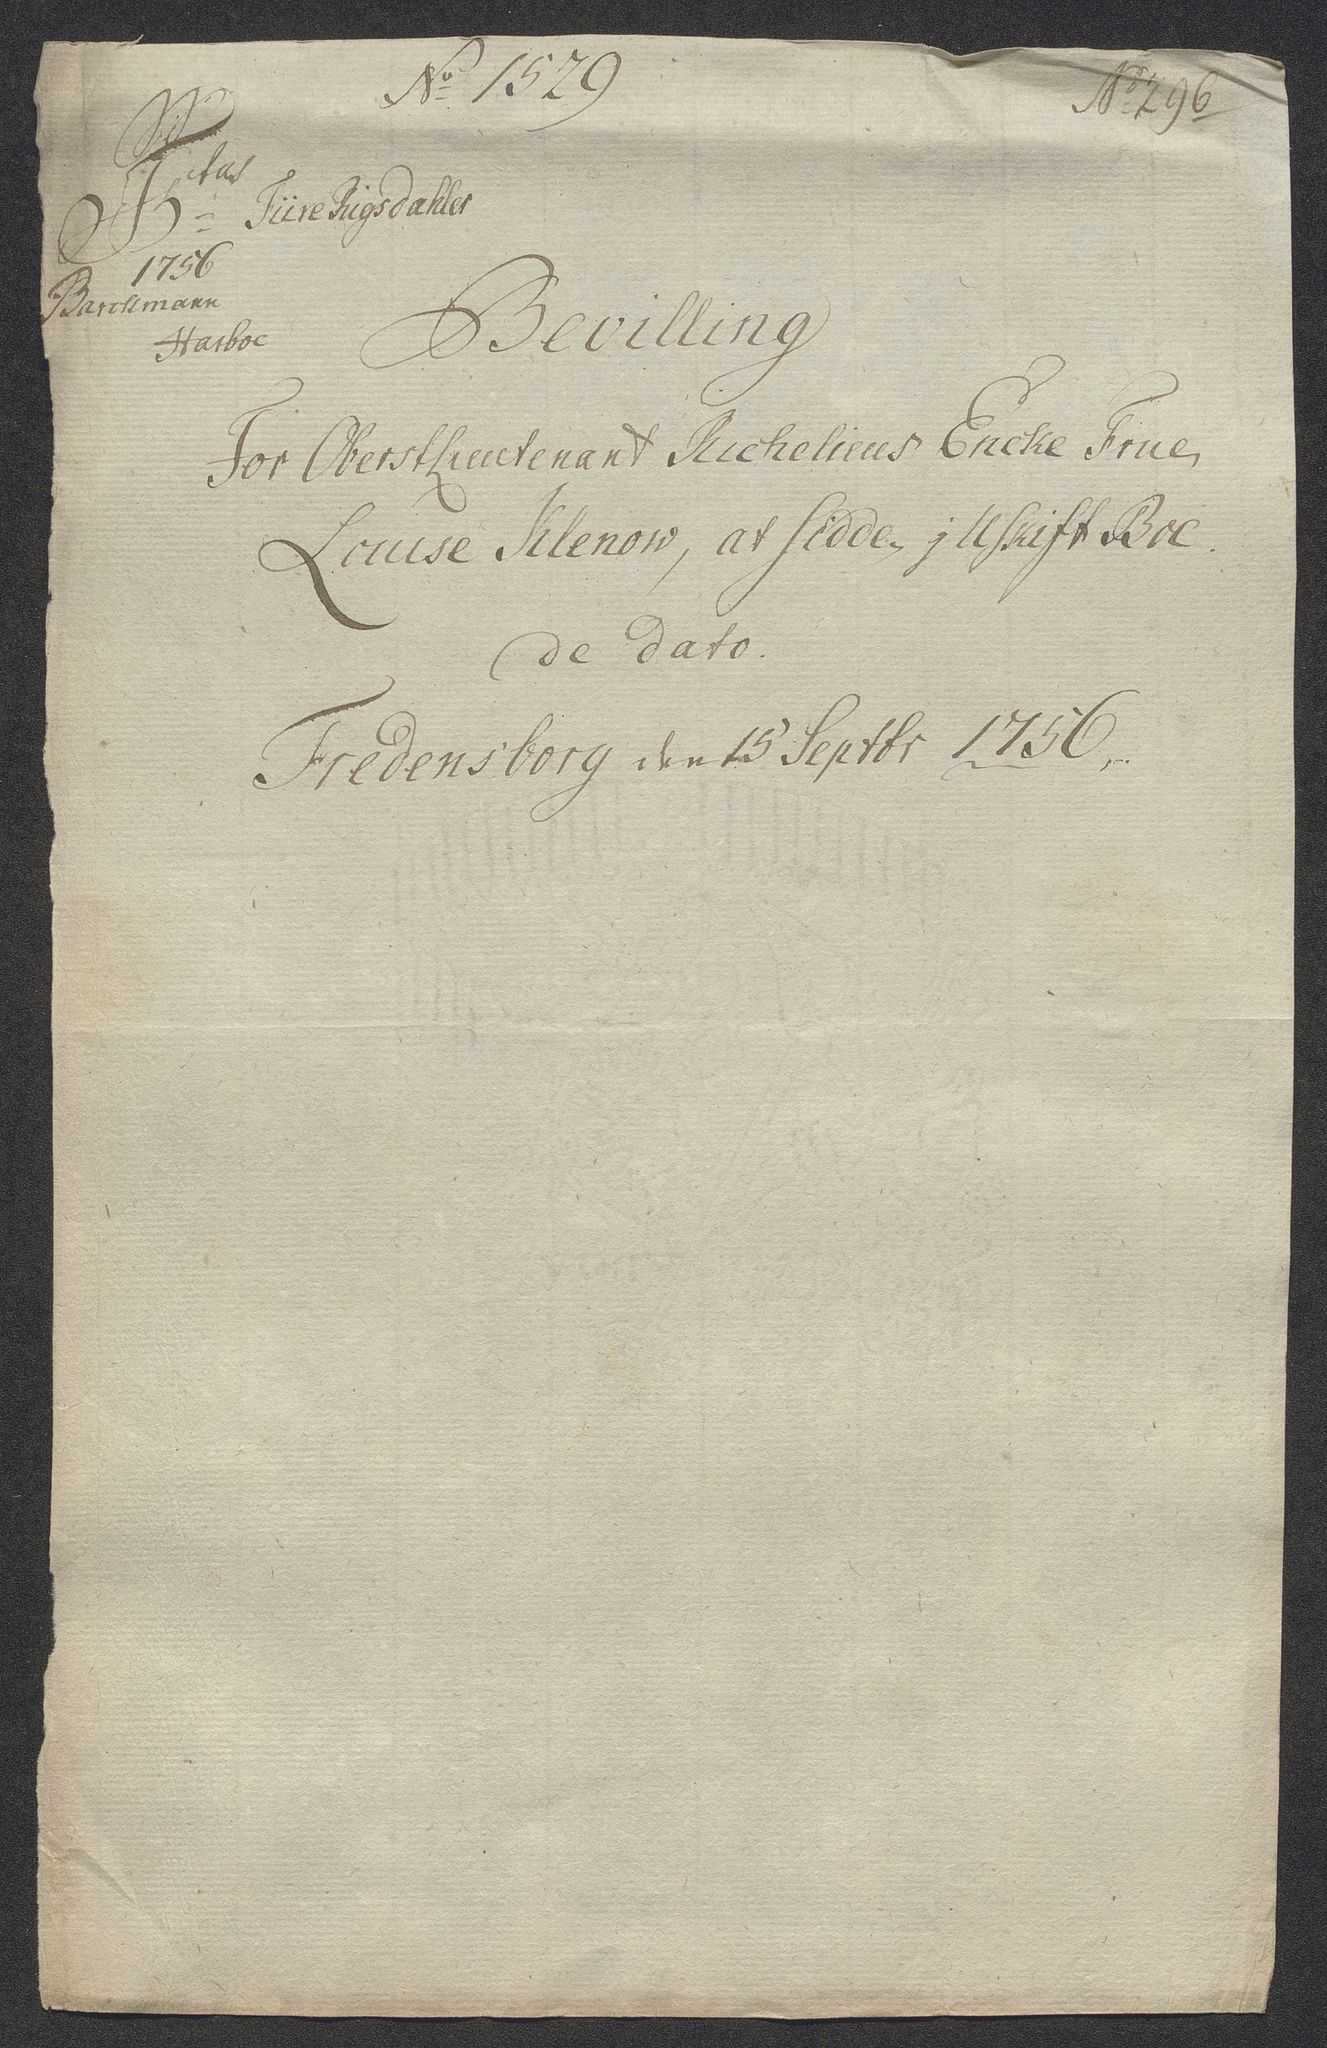 No 1529
No 296
Ftas
Fiire Rigsdahler
1756
Barckmann
Harboe
Bevilling
For Oberstlieutenant Richelieus Encke Frue,
Louise Klenow, at sidde j Uskift Boe
de dato.
Fredensborg den 15 Septbr 1756